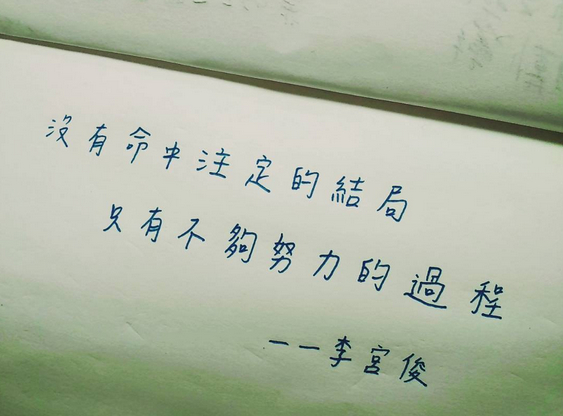 沒有命中注定的結局
只有不夠努力的過程
——李宮俊